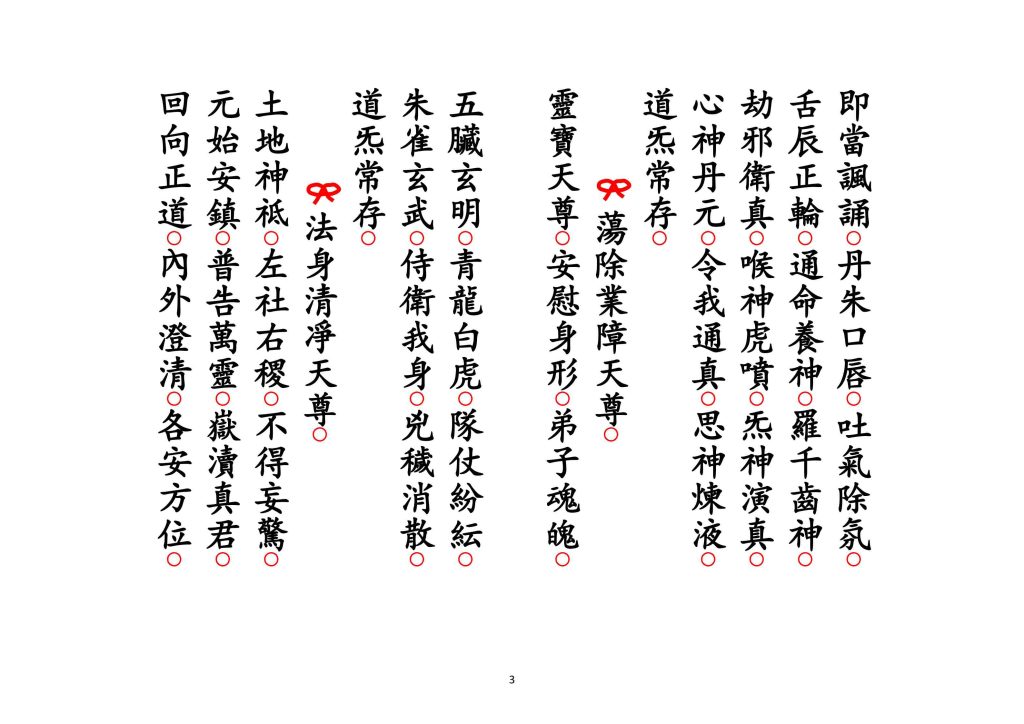 即當諷誦○丹朱口唇○吐氣除氛○
舌辰正輪○通命養神○羅千齒神○
劫邪衛真○喉神虎噴○炁神演真○
心神丹元○令我通真○思神煉液○
道炁常存○
蕩除業障天尊○
靈寶天尊○安慰身形○弟子魂魄○
五臟玄明○青龍白虎○隊仗紛紜○
朱雀玄武○侍衛我身○兇穢消散○
道炁常存○
法身清凈天尊○
土地神祇○左社右稷○不得妄驚○
元始安鎮○普告萬靈○嶽瀆真君○
回向正道○內外澄清○各安方位○
3